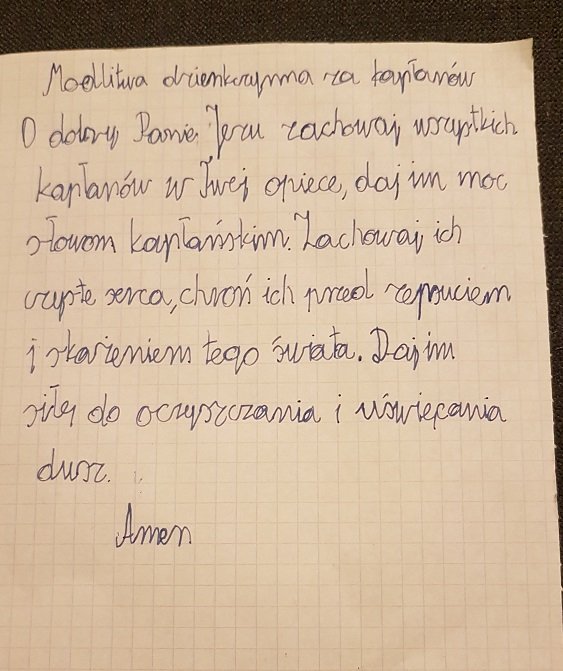 Modlitwa dzienkczynna za kapłanów
O dobry Panie Jezu zachowaj wszystkich
kapłanów w Twej opiece, daj im moc
słowom kapłańskim. Zachowaj ich
czyste serca, chroń ich przed zepsuciem
i skażeniem tego świata. Daj im
siłę do oczyszczania i uświęcania
dusz.
Amen